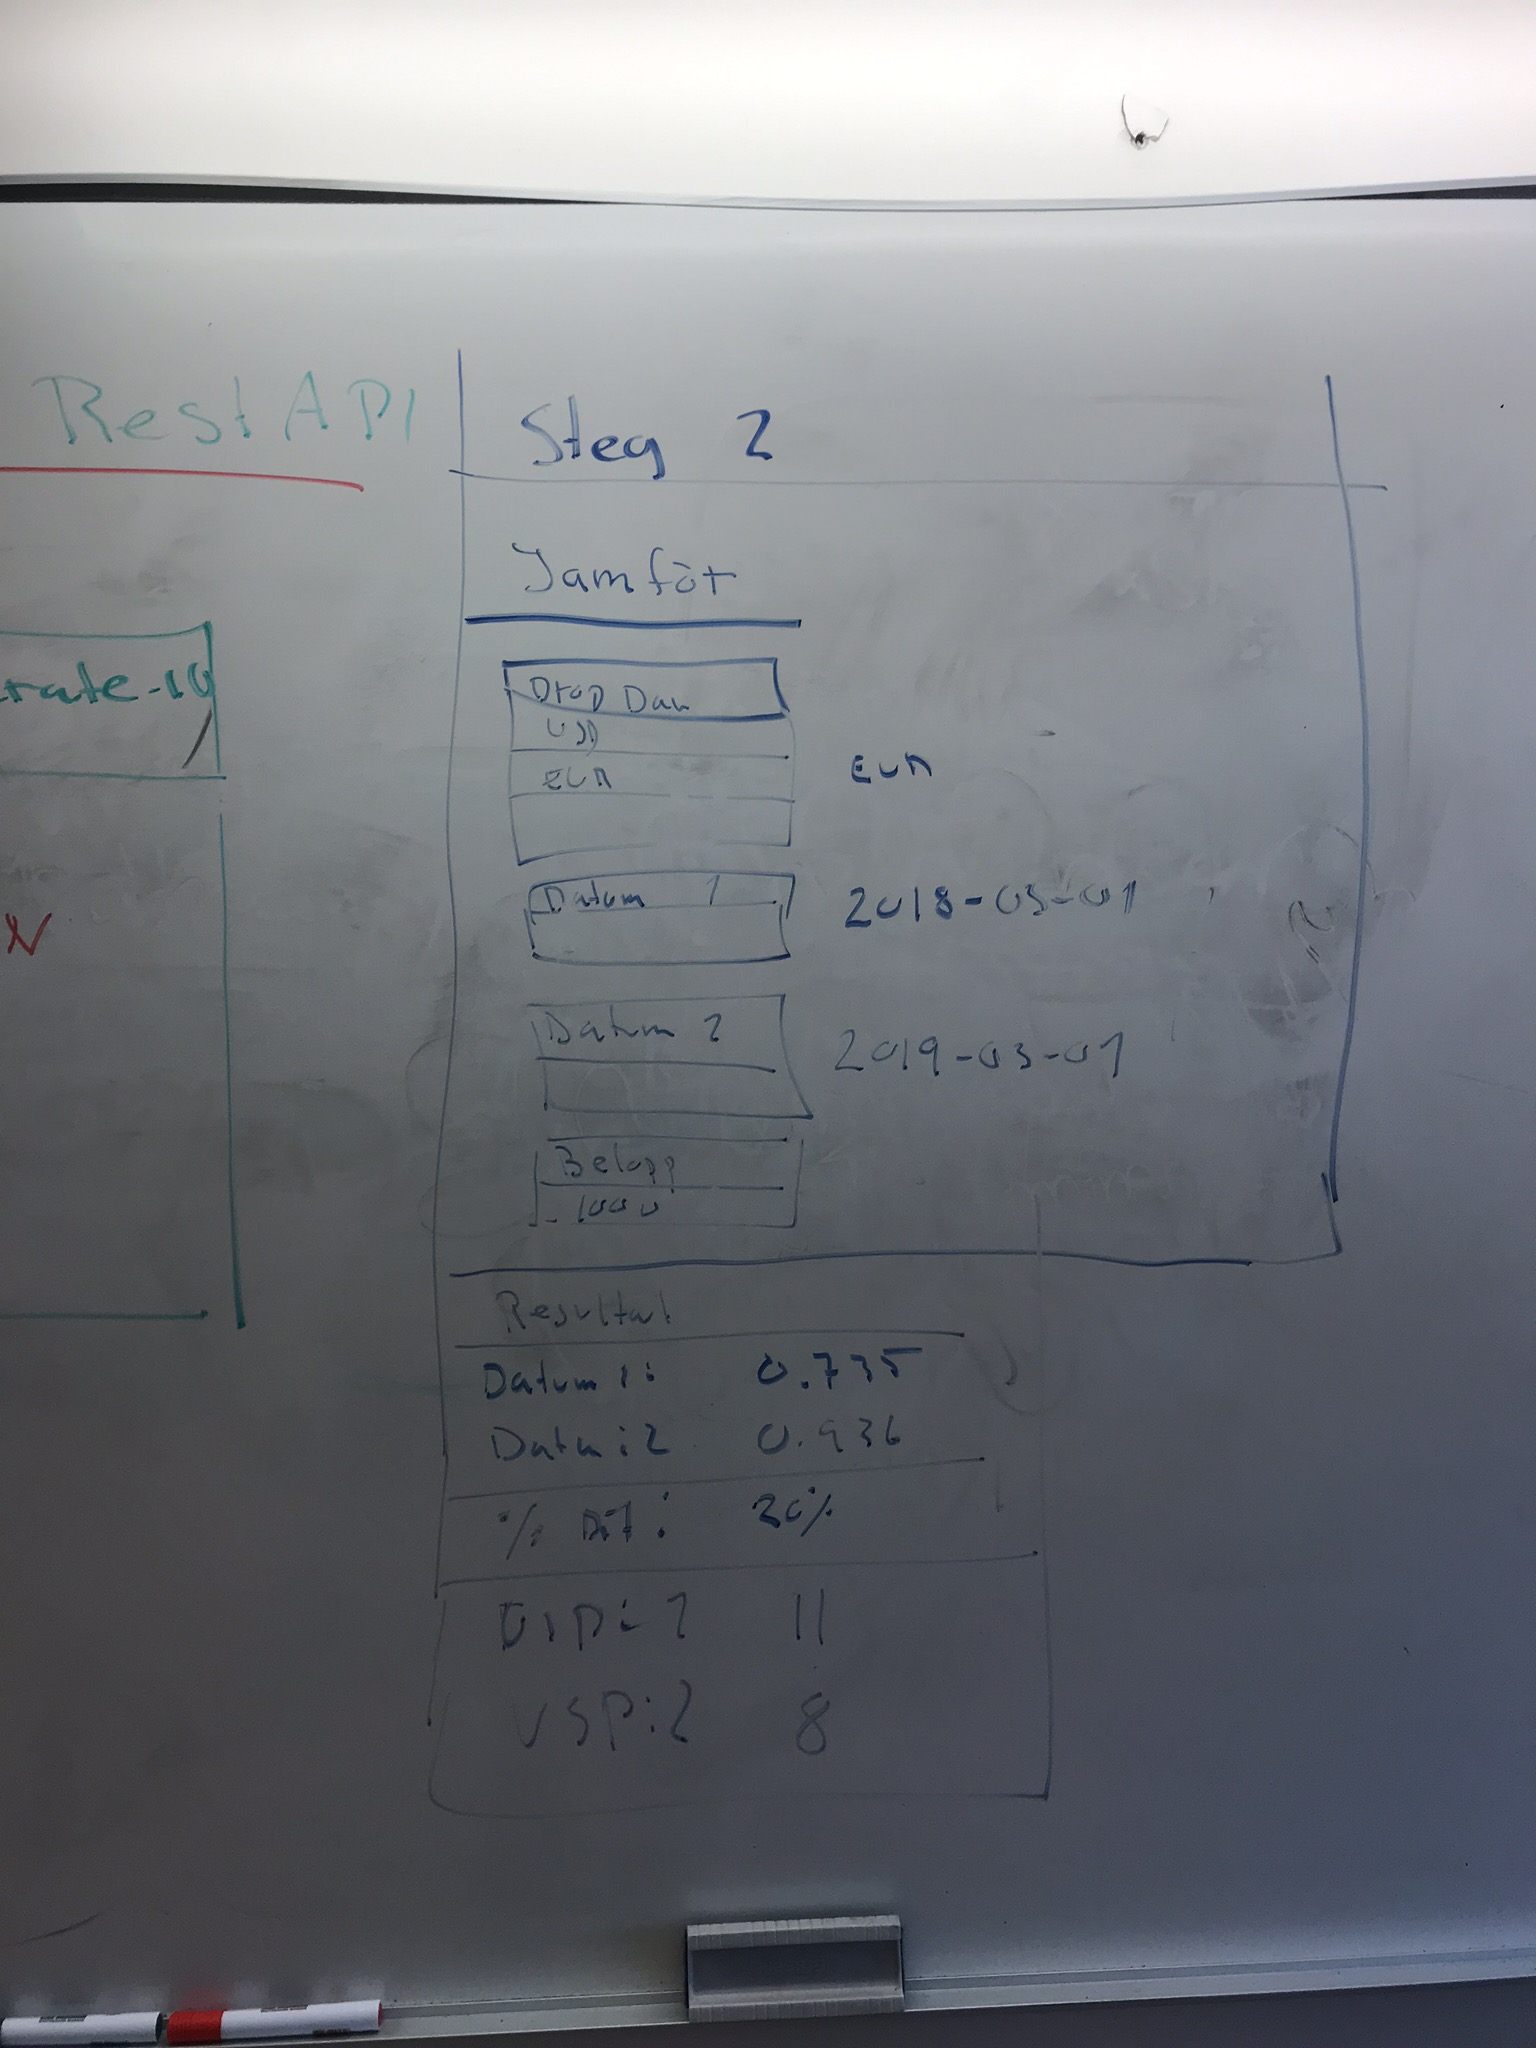 Rest API
rate-10
N
Steg 2
Jamför
Drop Dan
USD
EUR
EUR
Datum 1
2018-03-01
Datum 2
2019-03-01
Belopp
1000
Resultat
Datum 1: 0.735
Datum :2 0.936
% Dif: 20%
USD:1 11
USD:2 8